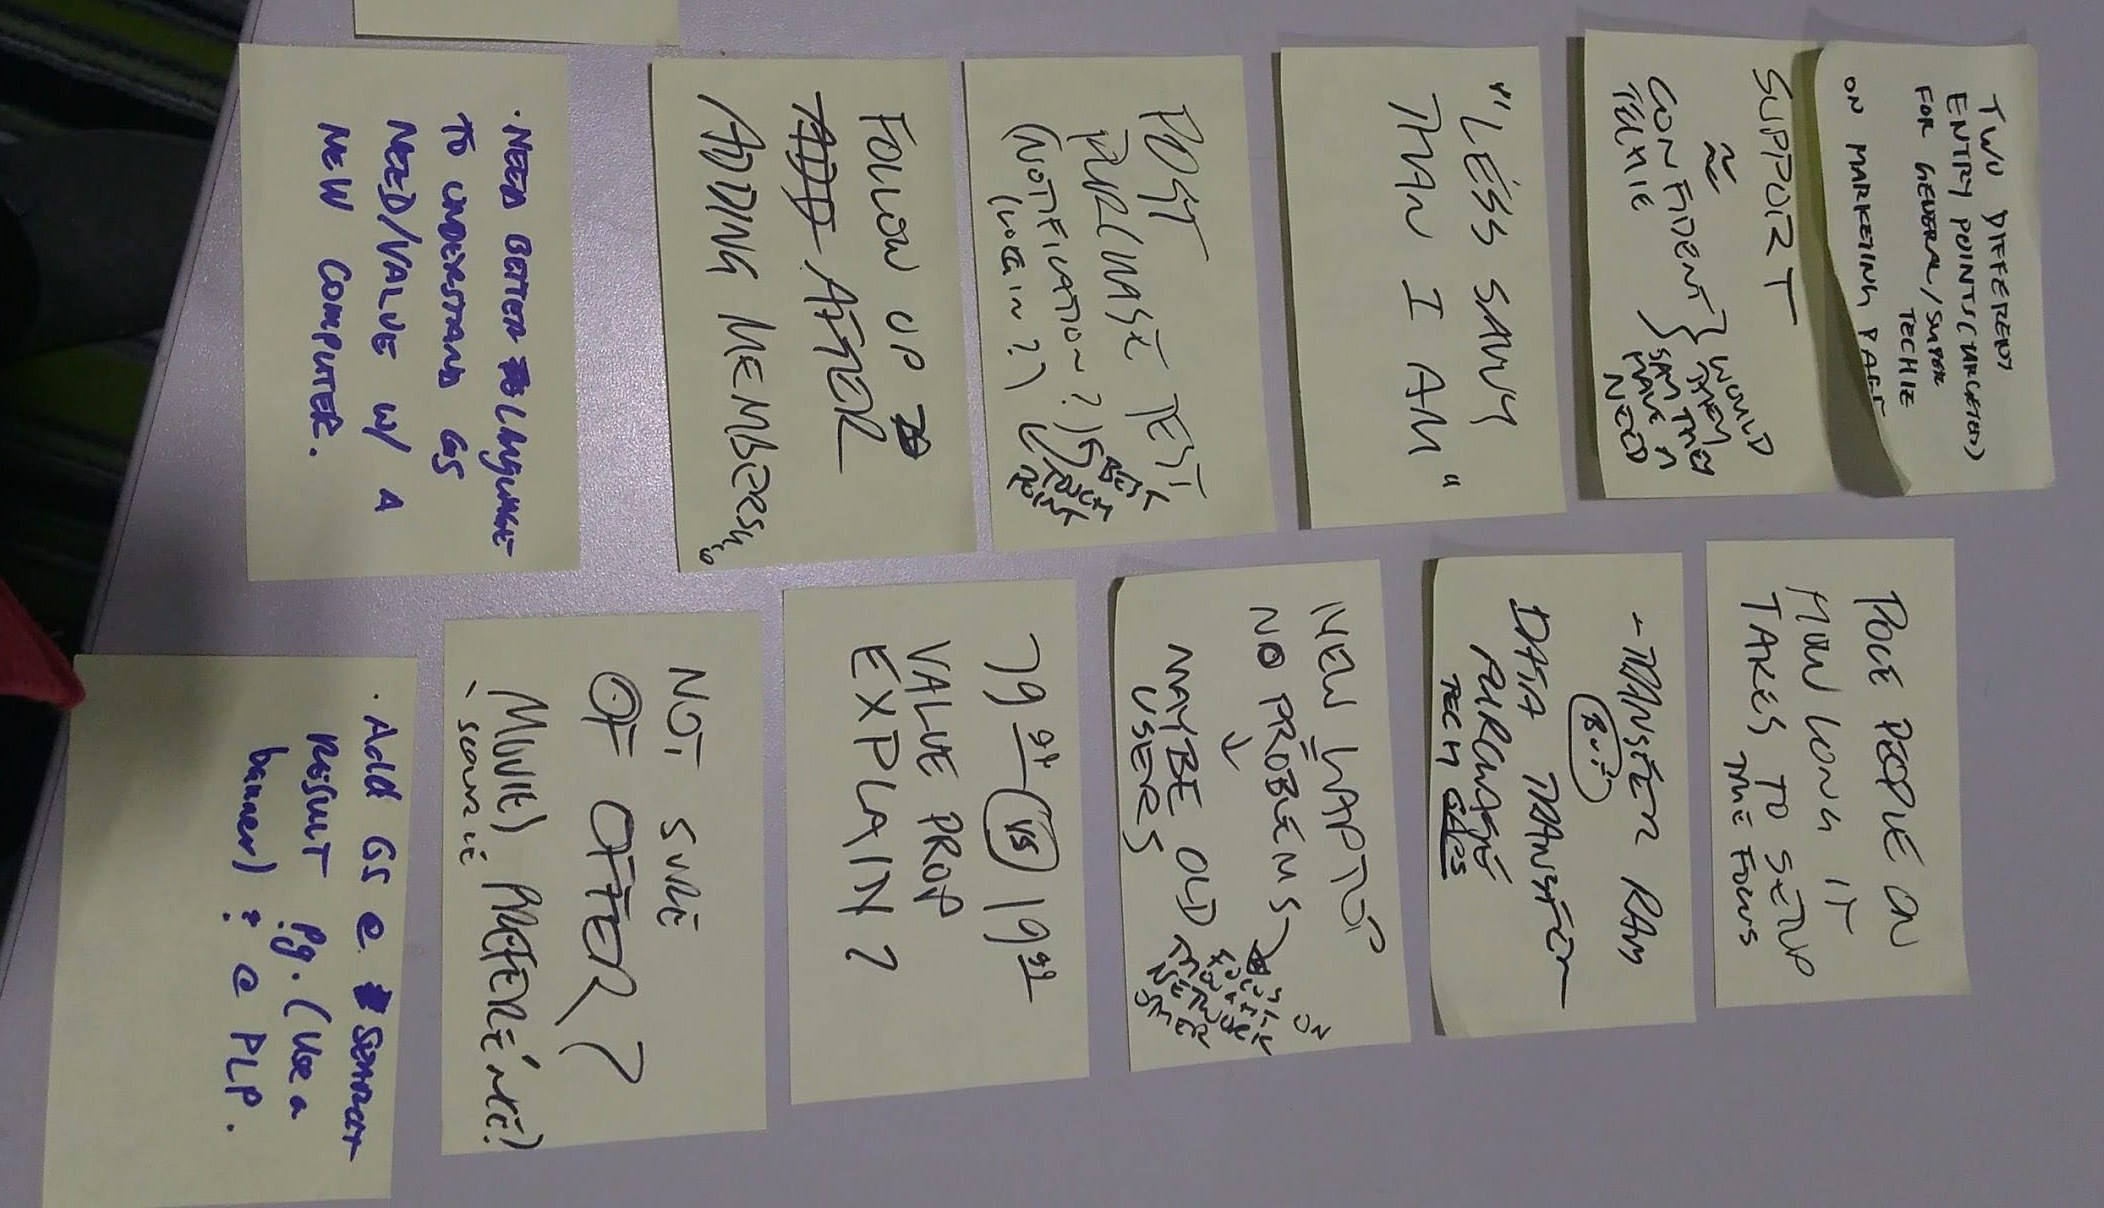 TWO DIFFERENT
ENTRY POINTS (TARGETED)
FOR GENERAL/SUPER
TECHIE
ON MARKETING PAGE
SUPPORT
≈
CONFIDENT
TECHIE
} WOULD
THEY
SAY THEY
HAVE A
NEED
"LESS SAVVY
THAN I AM"
POST
PURCHASE TEST
(NOTIFICATION?)
(LOGIN?)
BEST
TOUCH
POINT
FOLLOW UP
AFTER
ADDING MEMBERSHIP
· NEED BETTER LANGUAGE
TO UNDERSTAND GS
NEED/VALUE W/ A
NEW COMPUTER.
POLE PEOPLE ON
HOW LONG IT
TAKES TO SETUP
TIME FOCUS
- TRANSFER RAM
BUT
DATA TRANSFER
PURCHASE
TECH
NEW LAPTOP
=
NO PROBLEMS
↓
MAYBE OLD
USERS
FOCUS ON
NETWORK
79.99 VS 19.99
VALUE PROP
EXPLAIN?
NOT SURE
OF OFFER?
(MOVIE) PREFERENCE?
· Add GS @ SEARCH
RESULT Pg. (Use a
banner) ? @ PLP.